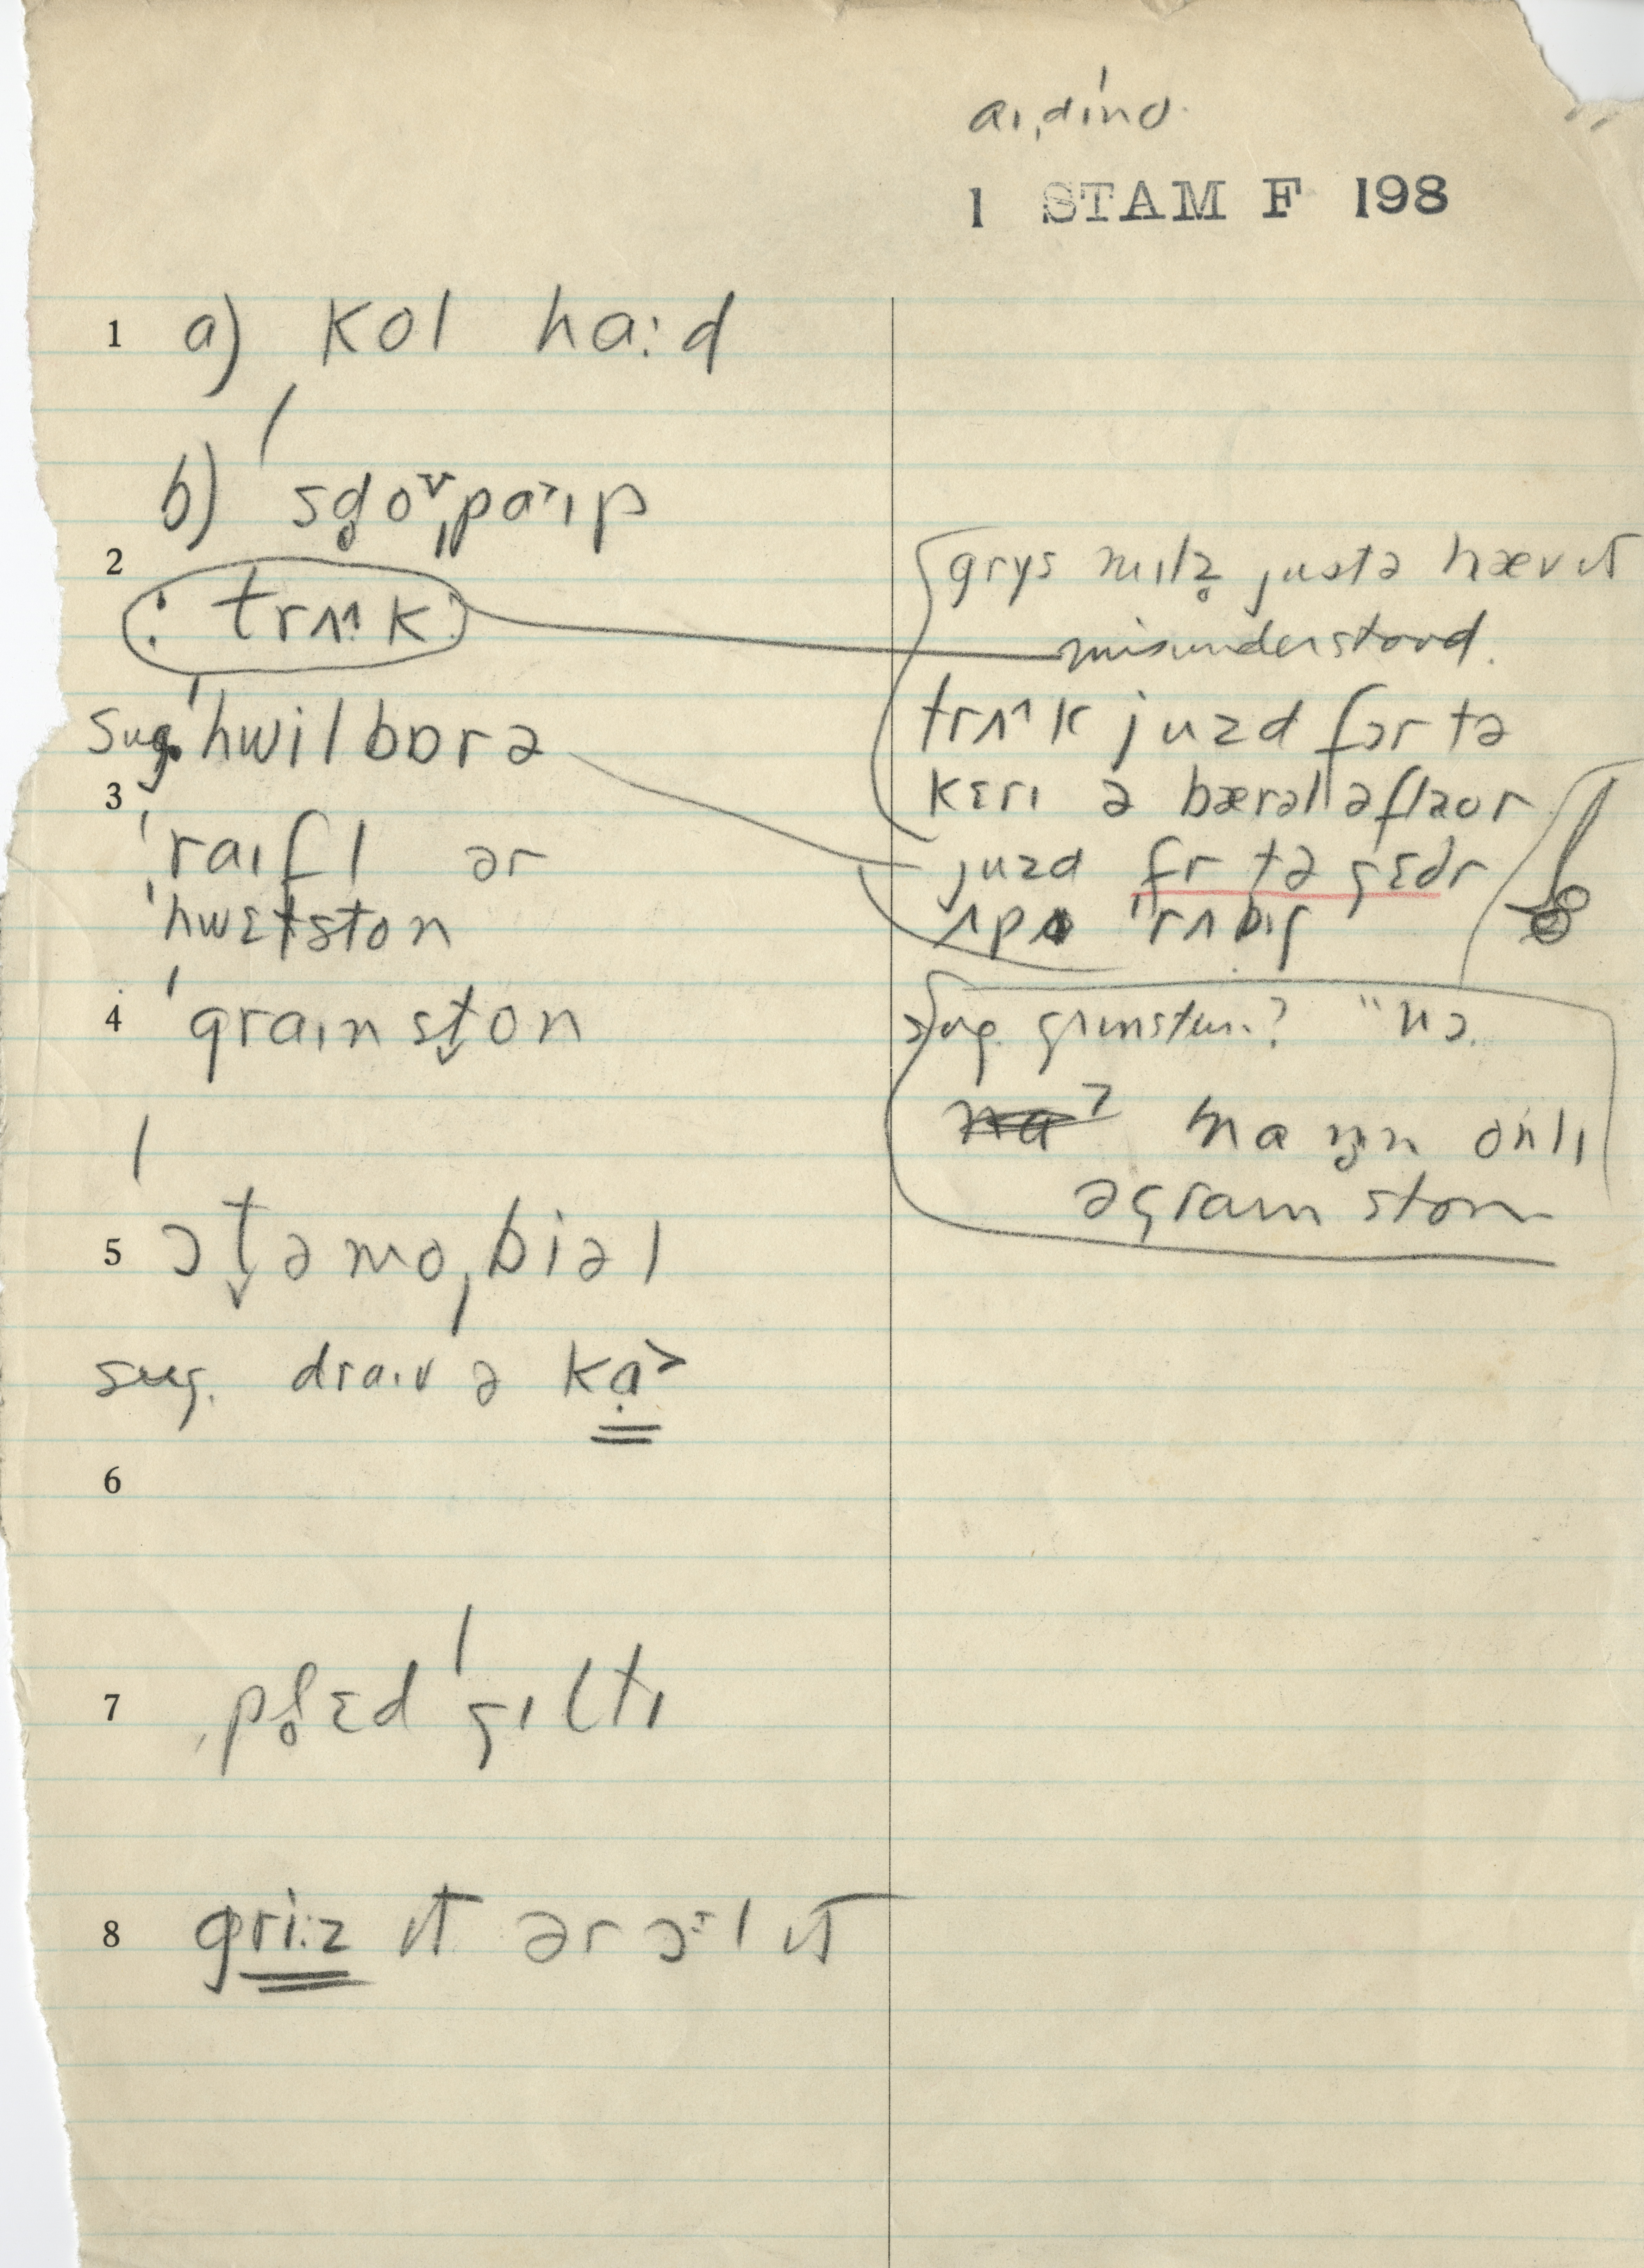 aɪˌdıno
1 STAM F 198
1 a) kol haːd
b) sd̥oᵛˌpaˑɪp
2
: trʌ^k :
sug. ˈhwilbɒrə
3
ˈraɪfl ər
ˈhwɛtston
4 ˈgraɪnst̬on
5 ɔt̬əmoˌbiəl
sug. draɪv ə ka˃
6
7 ˌpl̥ɛd ˈgɪltɪ
8 griːz ɪt ər ɔːl ɪt
grɪs mɪlz̥ justə hæv ɪt
misunderstood.
trʌ^k juzd fɔr tə
kɛrɪ ə bærəl ə flaor
juzd fr tə gɛðr
ʌp ˈrʌbɪʃ
sug. grinstun? "nɔ.
onlɪ
ə graɪn ston